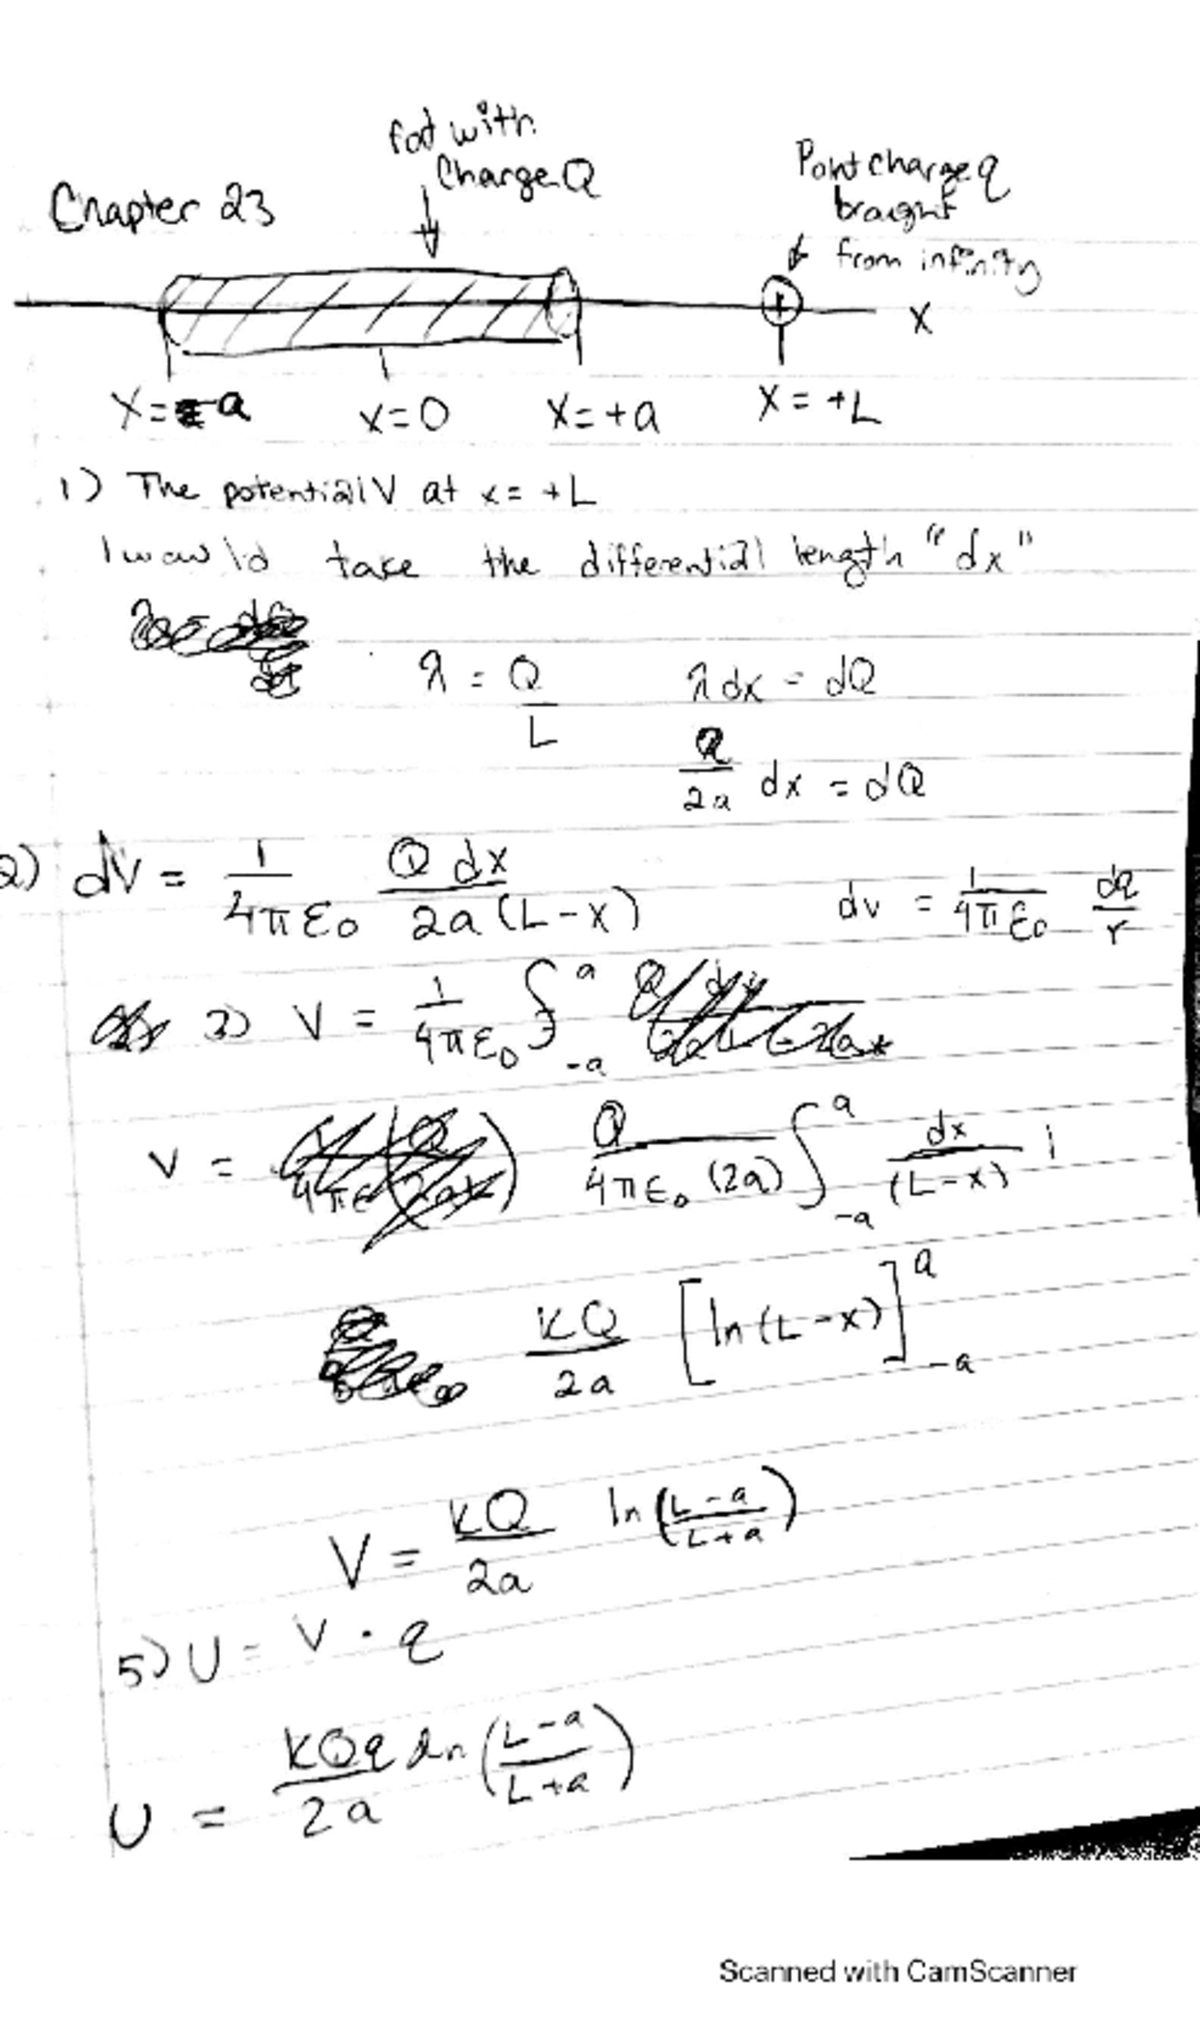 rod with
Charge Q
Chapter 23
Point charge q
braught
from infinity
X
X = -a x=0 X=+a X = +L
1) The potential V at x = +L
I would take the differential length "dx"
λ = Q/L λ dx = dQ
Q/2a dx = dQ
2) dV = 1/4πε₀ Q dx/2a(L-x) dv = 1/4πε₀ dQ/r
3) V = 1/4πε₀ ∫₋ₐᵃ
V = Q/4πε₀(2a) ∫₋ₐᵃ dx/(L-x) ;
KQ/2a [ln(L-x)]₋ₐᵃ
V = KQ/2a ln(L-a/L+a)
5) U = V · q
U = KQq/2a ln(L-a/L+a)
Scanned with CamScanner